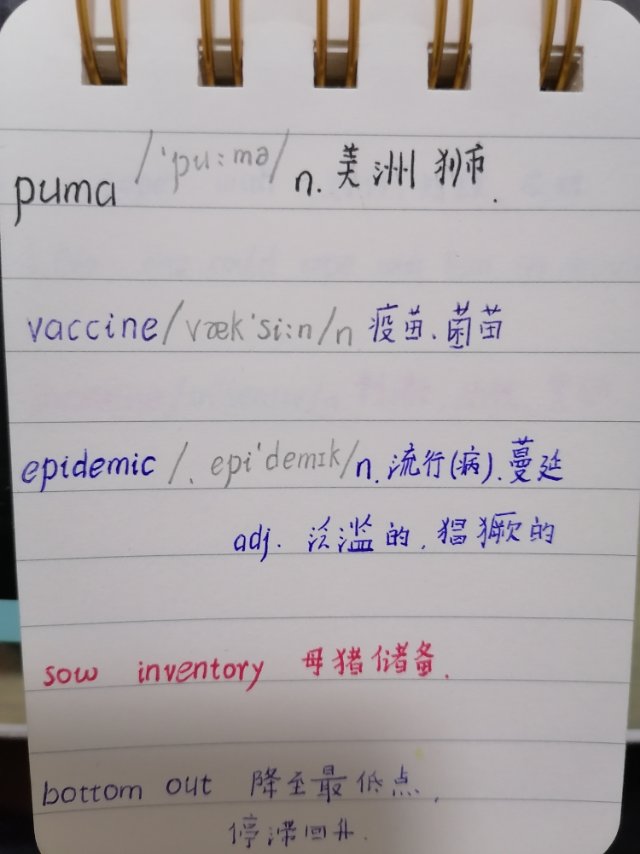 puma /ˈpu:mə/ n. 美洲狮.
vaccine /væk'si:n/ n 疫苗、菌苗
epidemic /ˌepi'demɪk/ n. 流行(病)、蔓延
adj. 泛滥的，猖獗的
sow inventory 母猪储备.
bottom out 降至最低点，
停滞回升.